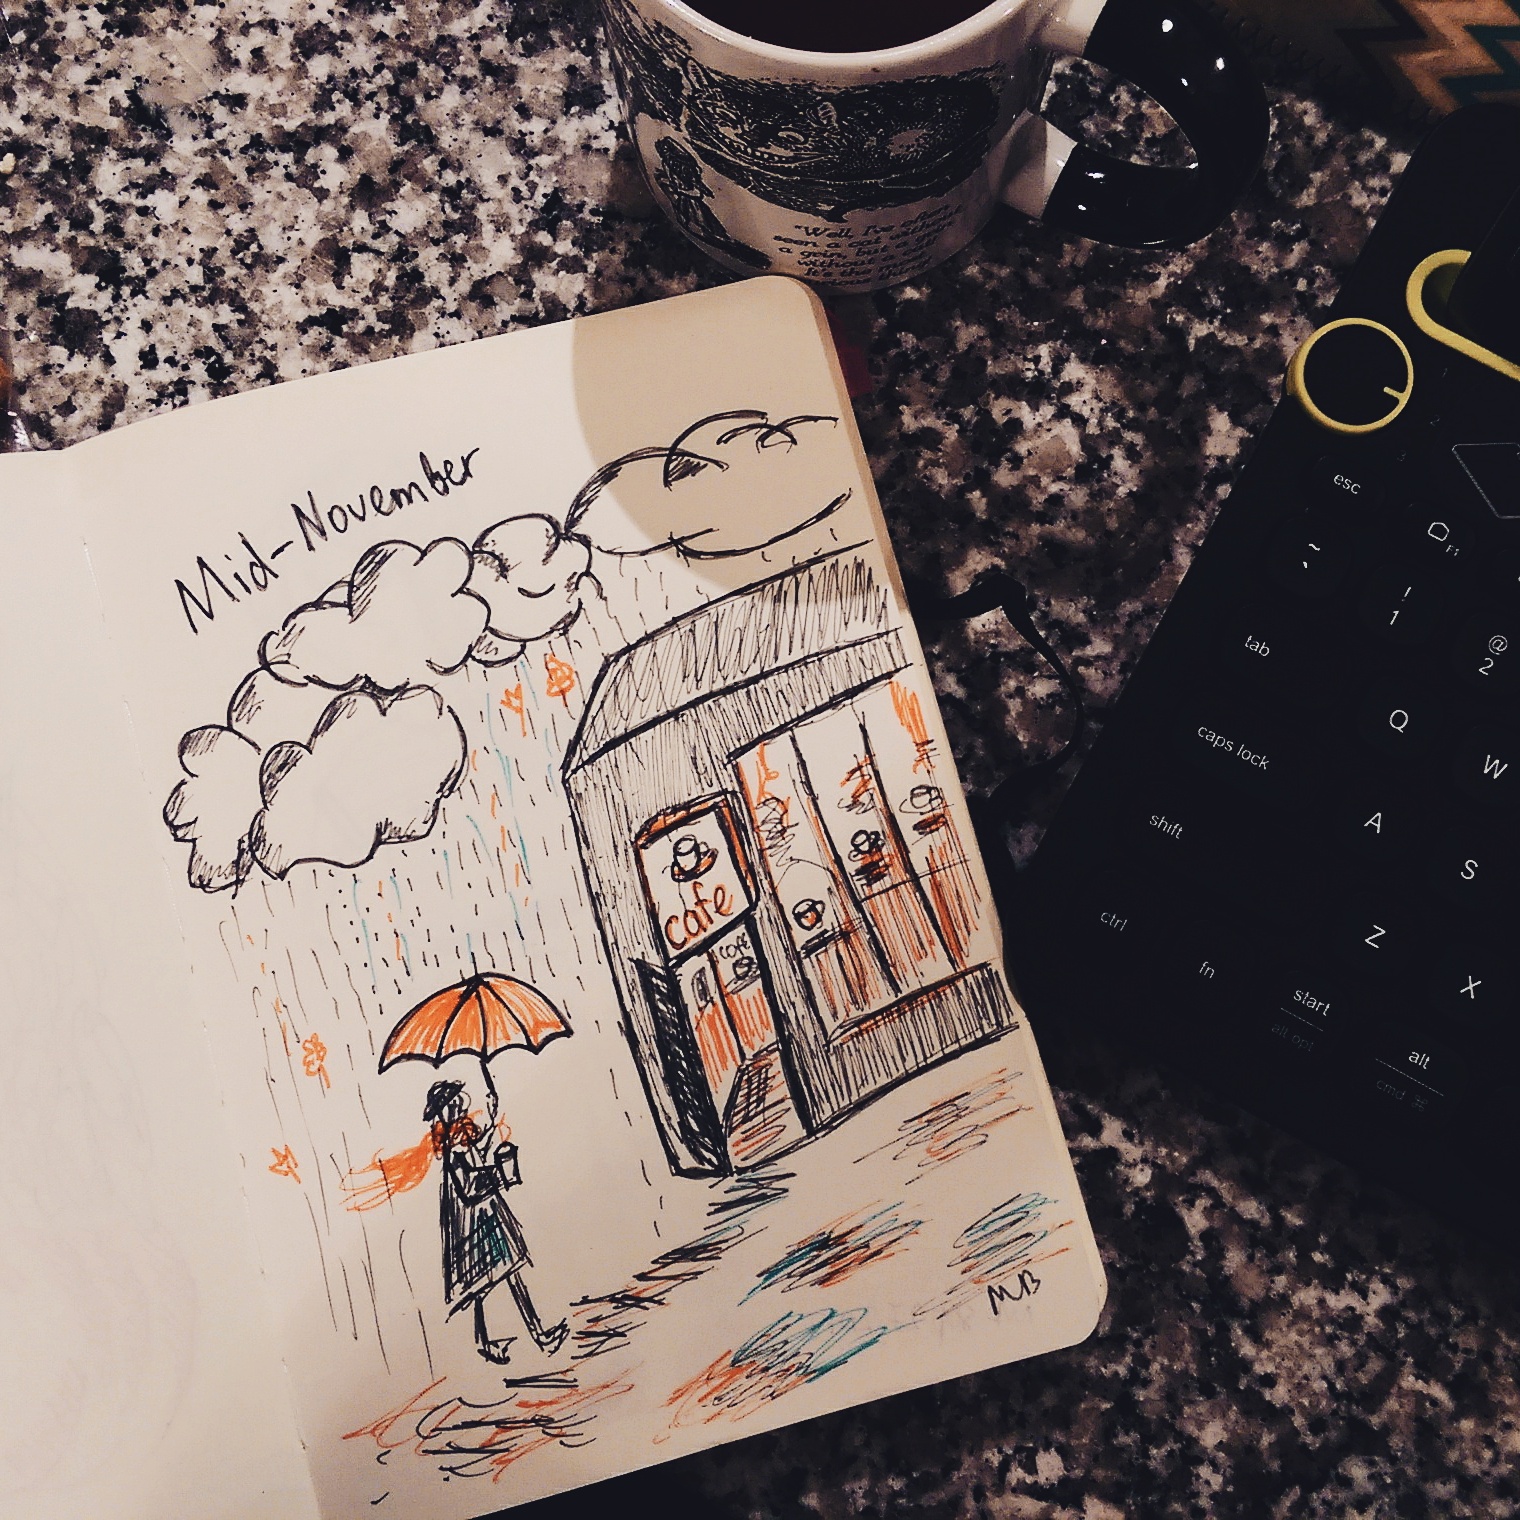 "Well, I've often
seen a cat without
a grin, but a
It's the
Mid-November
cafe
café
MB
esc
F1
~
`
!
1
@
2
tab
Q
W
caps lock
A
S
shift
Z
X
ctrl
fn
start
alt opt
alt
cmd ⌘